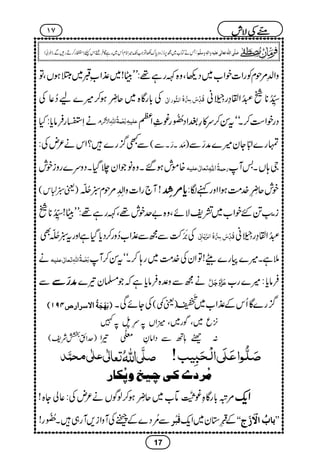 مُنّے کی لاش ١٧
فرمانِ مصطفےٰ صلَّی اللہُ تعالٰی علیہِ واٰلہٖ وسلَّم
والدِ مرحوم کو رات خواب میں دیکھا، وہ کہہ رہے تھے: ’’بیٹا! میں عذابِ قبر میں مبتلا ہوں، تو
سیِّدُنا شیخ عبدُالقادر جیلانی قُدِّسَ سِرُّہُ النُّورانی کی بارگاہ میں حاضِر ہوکر میرے لئے دُعا کی
درخواست کر۔‘‘ یہ سن کر سرکارِ بغداد حُضُورِ غوثِ اعظم علیہِ رَحمۃُ اللہِ تعالٰی علیہ نے اِستِفسار فرمایا: کیا
تمہارے ابّاجان میرے مدرَسے سے کبھی گزرے ہیں؟ اس نے عرض کی:
جی ہاں۔ بس آپ رحمۃُ اللہِ تعالٰی علیہ خاموش ہوگئے۔ وہ نوجوان چلا گیا۔ دوسرے روز خوش
خوش حاضِرِ خدمت ہوا اور کہنے لگا: یا مرشِد! آج رات والدِ مرحوم سبز حُلّہ (یعنی سبز لباس)
زیبِ تن کئے خواب میں تشریف لائے، وہ بے حد خوش تھے، کہہ رہے تھے: ’’بیٹا! سیِّدُنا شیخ
عبدُالقادر جیلانی قُدِّسَ سِرُّہُ الرَّبَّانی کی بَرَکت سے مجھ سے عذاب دُور کردیا گیا ہے اور یہ سبز حُلّہ بھی
ملا ہے۔ میرے پیارے بیٹے! تو ان کی خدمت میں رہا کر۔‘‘ یہ سن کر آپ رحمۃُ اللہِ تعالٰی علیہ نے
فرمایا: میرے رب عَزَّوَجَلَّ نے مجھ سے وعدہ فرمایا ہے کہ جو مسلمان تیرے مدرَسے سے
گزرے گا اُس کے عذاب میں تخفیف (یعنی کمی) کی جائے گی۔ (بَہْجَۃُ الاسرار ص ١٩٤)
نزع میں، گور میں، میزاں پہ، سرِ پل پہ کہیں
نہ چھٹے ہاتھ سے دامانِ معلّٰی تیرا (حدائقِ بخشش شریف)
صَلُّوا عَلَی الْحَبِیْب! صلَّی اللہُ تعالٰی علٰی محمَّد
مُردے کی چیخ و پکار
ایک مرتبہ بارگاہِ غوثیَّت مآب میں حاضِر ہوکر لوگوں نے عرض کی: عالی جاہ!
’’بابُ الْاَزَج‘‘ کے قبرِستان میں ایک قَبْر سے مُردے کے چیخنے کی آوازیں آ رہی ہیں۔ حُضُور!
17